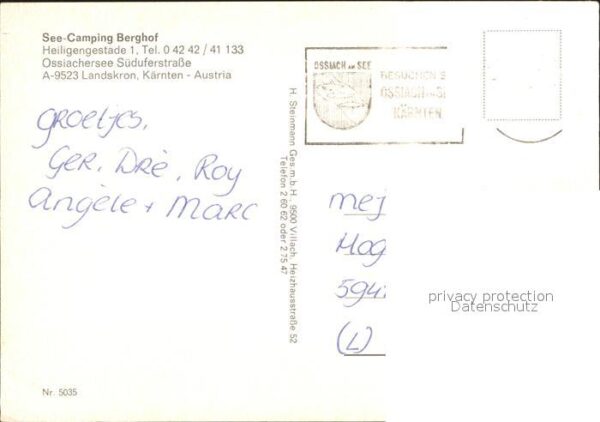 See-Camping Berghof
Heiligengestade 1, Tel. 0 42 42 / 41 133
Ossiachersee Süduferstraße
A-9523 Landskron, Kärnten - Austria
OSSIACH AM SEE
BESUCHEN S
OSSIACH
KÄRNTEN
groetjes,
Ger, Drè, Roy
Angèle + Marc
H. Steinmann Ges.m.b.H. 9500 Villach, Heizhausstraße 52
Telefon 2 60 62 oder 2 75 47
mej
Hog
594
(L)
privacy protection
Datenschutz
Nr. 5035